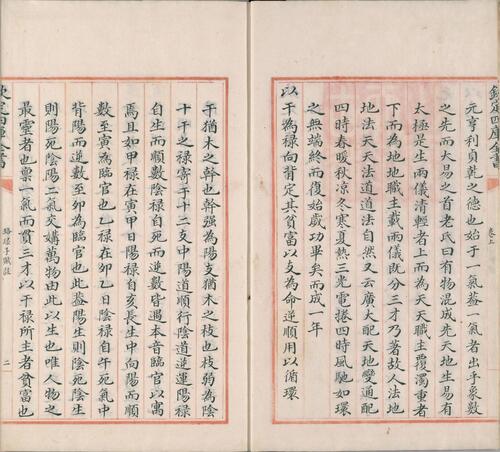 欽定四庫全書
卷上
元亨利貞乾之德也始于一氣葢一氣者出乎象數
之先而大易之首老氏曰有物混成先天地生易有
太極是生兩儀清輕者上而為天天職主覆濁重者
下而為地地職主載兩儀既分三才乃著故人法地
地法天天法道道法自然又云廣大配天地變通配
四時春暖秋凉冬寒夏熱三光電捲四時風馳如環
之無端終而復始歲功畢矣而成一年
以干為禄向背定其貧富以支為命逆順用以循環
干猶木之幹也幹强為陽支猶木之枝也枝弱為陰
十干之禄寄于十二支中陽道順行隂道逆運陽禄
自生而順數陰禄自死而逆數皆遇本音臨官以寓
焉且如甲禄在寅甲日陽禄自亥長生中向陽而順
數至寅為臨官也乙禄在卯乙日陰禄自午死氣中
背陽而逆數至卯為臨官也此葢陽生則陰死陰生
則陽死陰陽二氣交媾萬物由此以生也唯人物之
最靈者也禀一氣而貫三才以干禄所主者貧富也
欽定四庫全書
珞琭子賦註
二